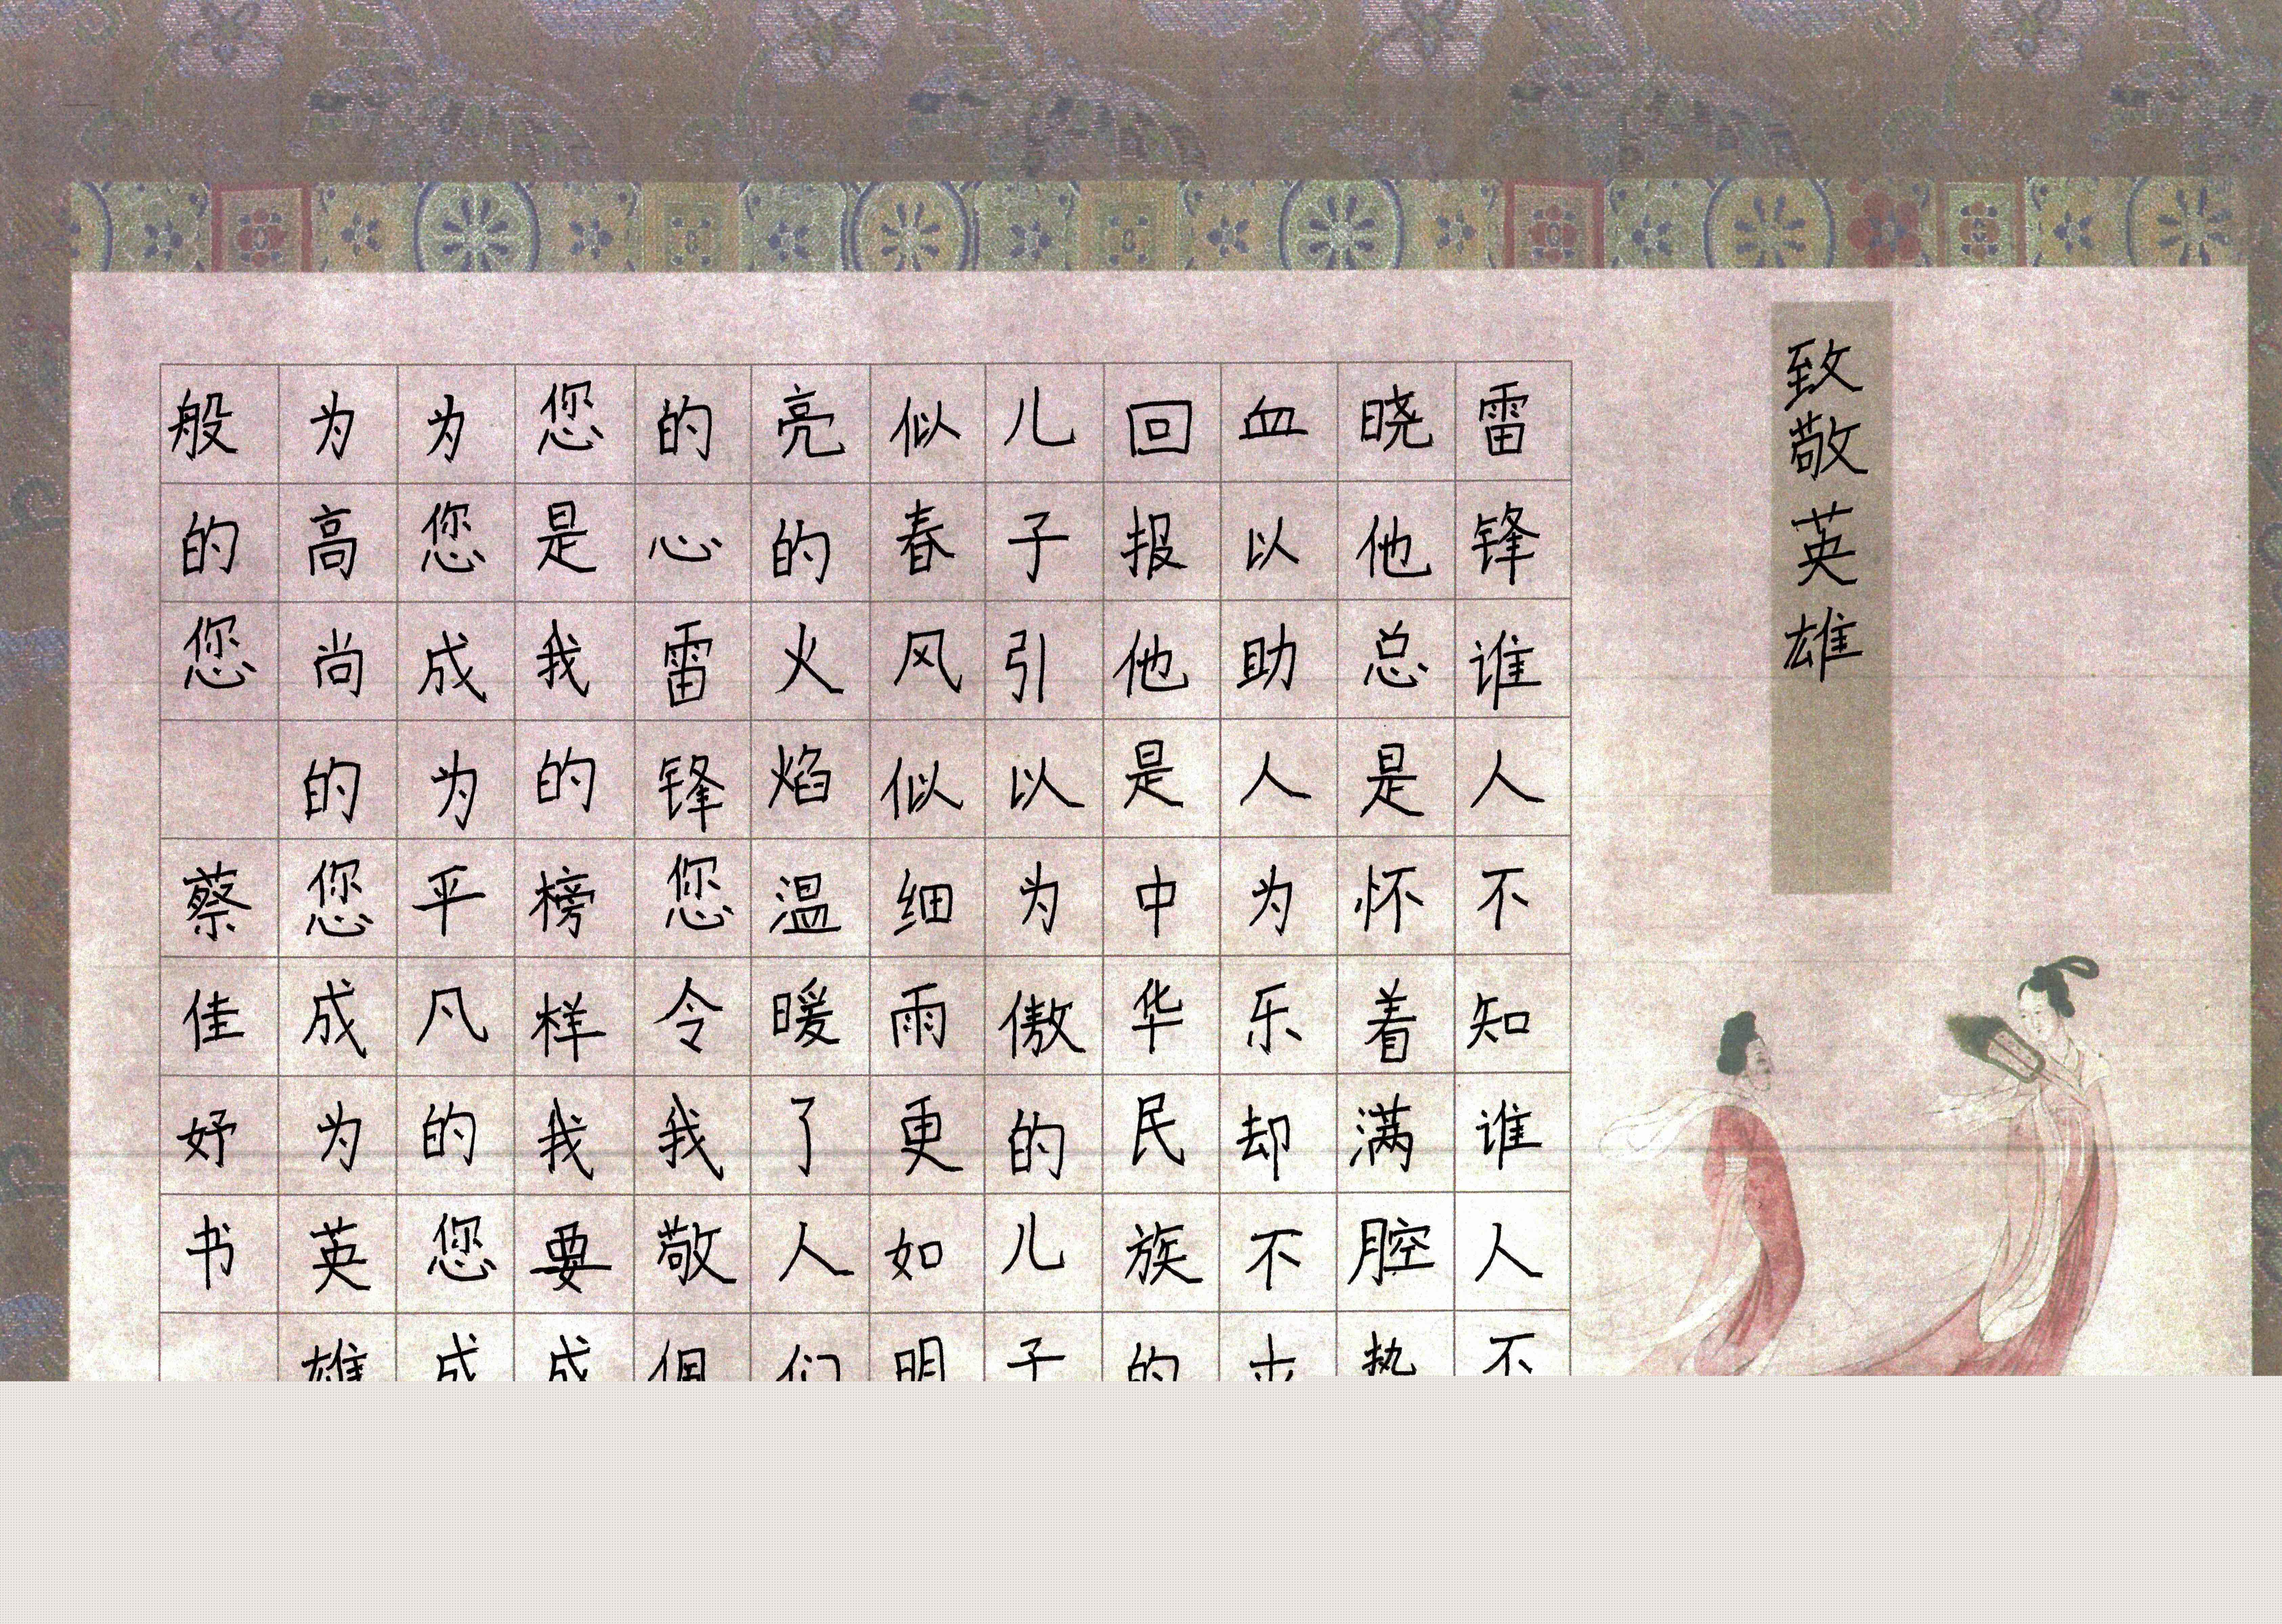 致敬英雄
雷锋谁人不知谁人不
晓他总是怀着满腔热
血以助人为乐却不
回报他是中华民族的
儿子引以为傲的儿子
似春风似细雨更如明
亮的火焰温暖了人们
的心雷锋您令我敬佩
您是我的榜样我要成
为您成为平凡的您成
为高尚的您成为英雄
般的您 蔡佳妤书